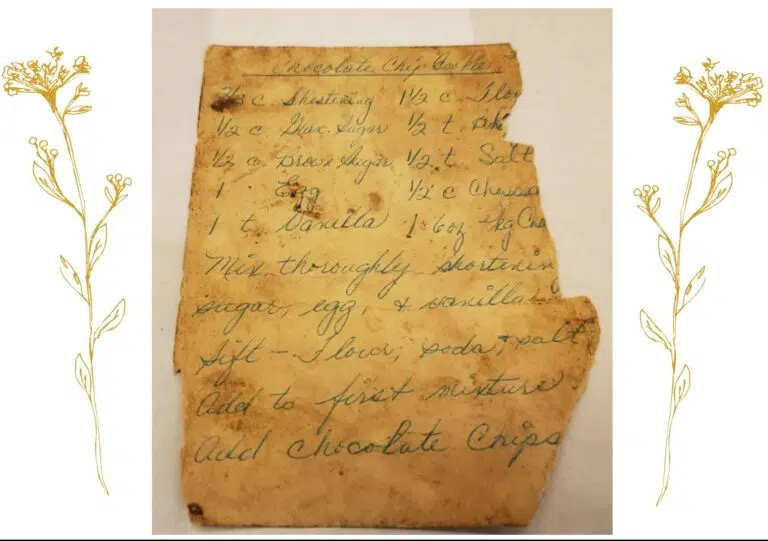 Chocolate Chip Cookies
2/3 c Shortening 1 1/2 c Flou
1/2 c Gran. Sugar 1/2 t
1/2 c Brown Sugar 1/2 t Salt
1 Egg 1/2 c
1 t Vanilla 1 6oz kg Cho
Mix thoroughly shortenin
sugar, egg, + vanilla
Sift - Flour, soda, + salt
Add to first mixture.
Add chocolate Chips